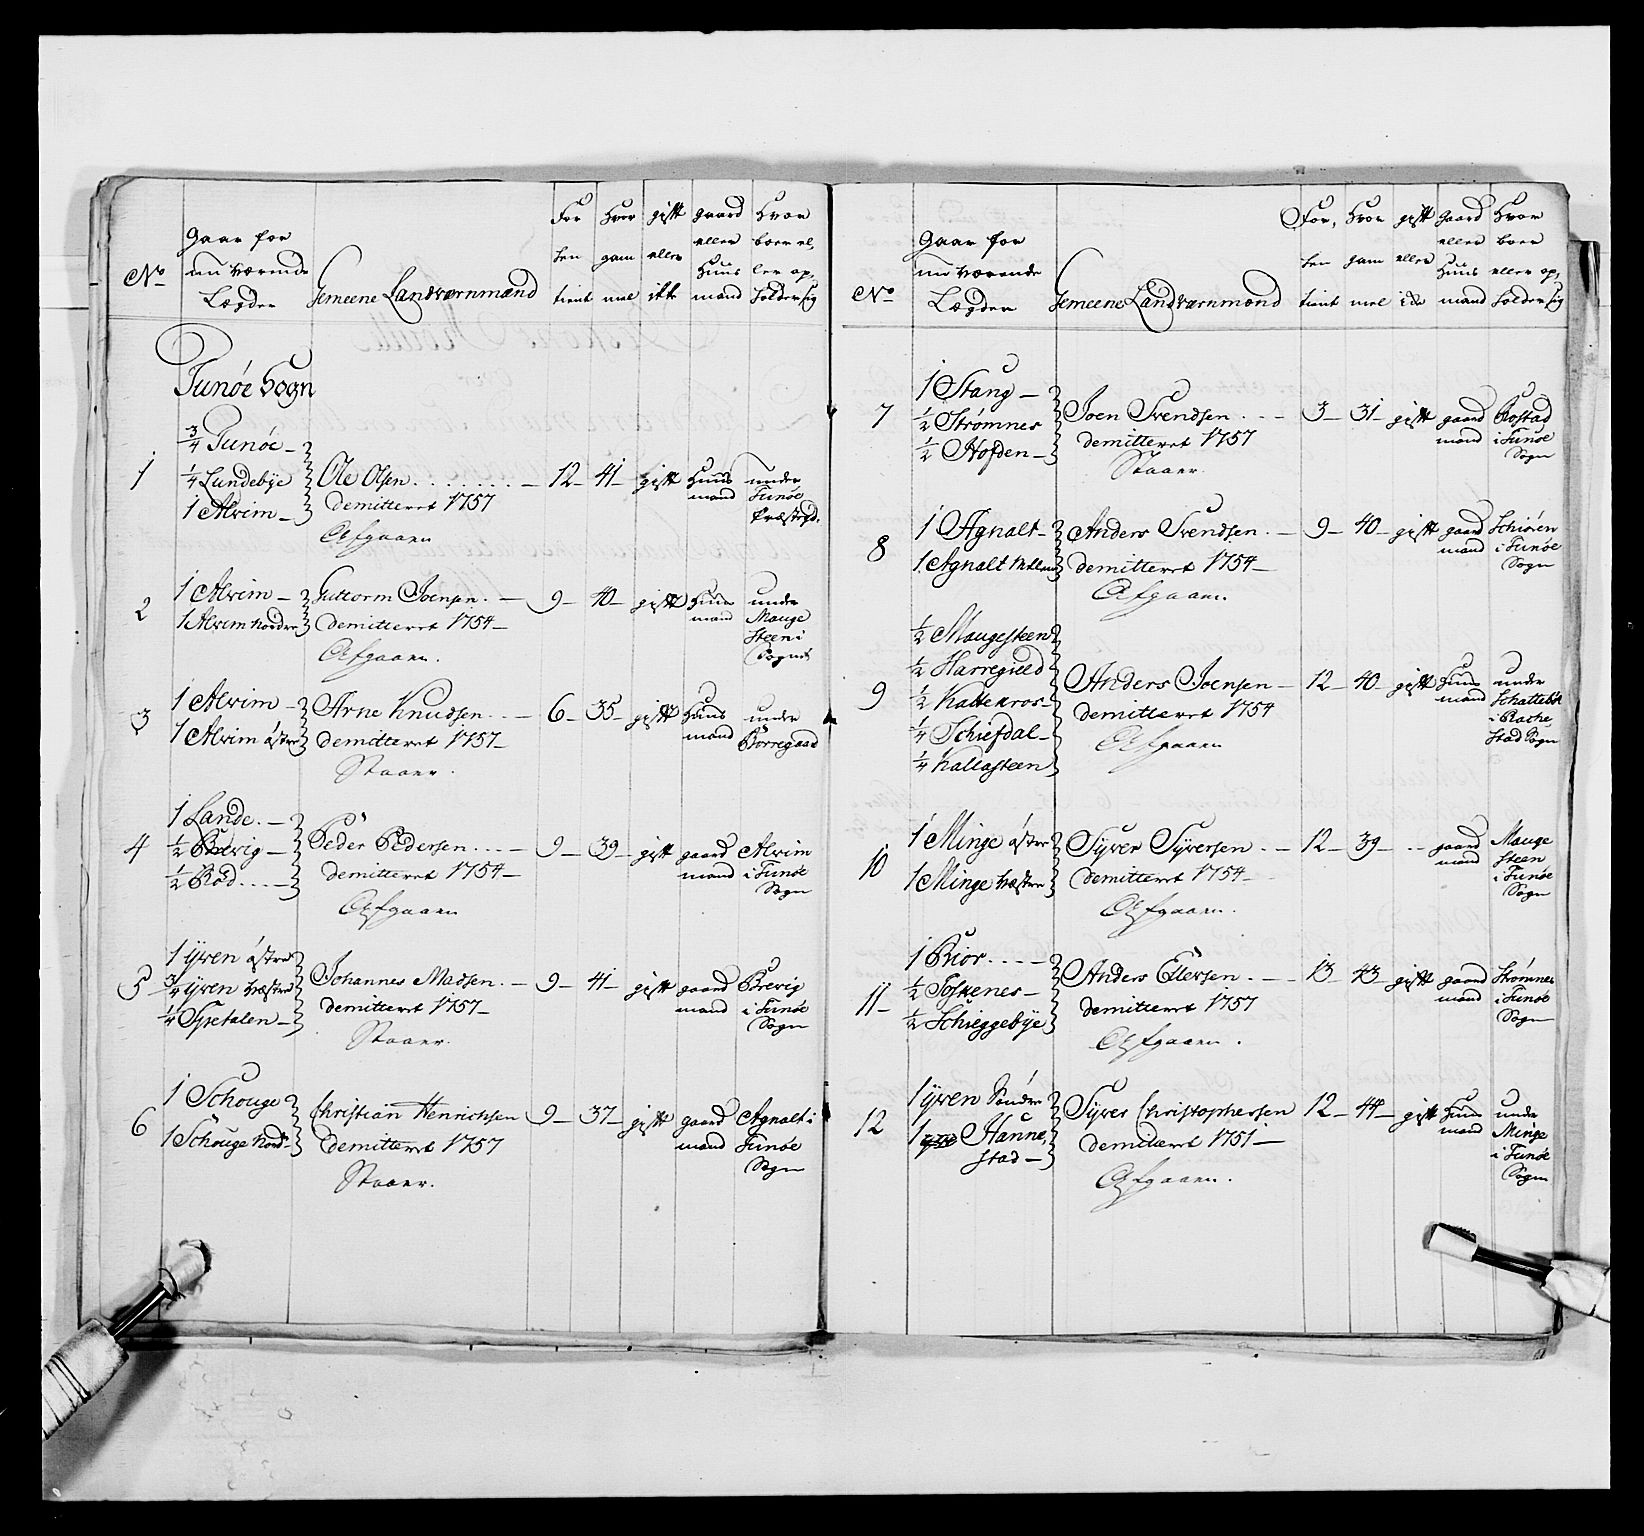 No
Gaar for
nu værende
Lægder
Gemeene Landværnmænd
For
hen
tient
Hvor
gam
mel
gift
eller
ikke
gaard
eller
Huus
mand
Hvor
boer el,
ler op,
holder sig
Tunøe Sogn
1
3/4 Tunøe
1/4 Lundebÿe
1 Alvim
Ole Olsen
demitteret 1757
Afgaaer
12 41 gift
Huus
mand
under
Tunøe
Præstegd.
2
1 Alvim
1 Alvim Nordre
Guttorm Joensen
demitteret 1754
Afgaaer.
9 40 gift
Huus
mand
under
Mauge
Steen i
Sognet
3
1 Alvim
1 Alvim østre
Arne Knudsen
demitteret 1757
Staaer.
6 35 gift
Huus
mand
under
Borregaad
4
1 Lande
1/2 Brevig
1/2 Rød
Peder Pedersen
demitteret 1754
Afgaaer
9 39 gift
gaard
mand
Alvim
i Tunøe
Sogn
5
1 Ÿven østre
3/4 Ÿven Væstre
1/4 Spetalen
Johannes Madsen
demitteret 1757
Staaer.
9 41 gift
gaard
mand
Brevig
i Tunøe
Sogn
6
1 Schouge
1 Schouge Nord
Christian Henrichsen
demitteret 1757
Staaer.
9 37 gift
gaard
mand
Agnalt i
Tunøe
Sogn
No
Gaar for
nu værende
Lægder
Gemeene Landværnmænd
For,
hen
tient
Hvor
gam
mel
gift
eller
gaard
eller
Huus
mand
Hvor
boer
eller op,
holder sig
7
1 Stang
1/2 Strømnes
1/2 Hofden
Joen Svendsen
demitteret 1757
Staaer.
3 31 gift
gaard
mand
Rostad
i Tunøe
Sogn
8
1 Agnalt
1 Agnalt
Anders Svendsen
demitteret 1754
Afgaaer.
9 40 gift
gaard
mand
Schiøren
i Tunøe
Sogn
9
1/2 Maugesteen
1/2 Harregield
1/2 Katteros
1/4 Schiefdal
1/4 Kallasteen
Anders Joensen
demitteret 1754
Afgaaer
12 40 gift
Huus
mand
under
Schattebøl
i Racke
stad Sogn
10
1 Minge østre
1 Minge Væstre
Sÿver Sÿversen
demitteret 1754
Afgaaer.
12 39
gaard
mand
Mauge
Steen
i Tunøe
Sogn
11
1 Bior
1/2 Toskenes
1/2 Schieggebÿe
Anders Ellersen
demitteret 1757
Afgaaer.
13 43 gift
gaard
mand
Strømnes
i Tunøe
Sogn
12
1 Ÿven Søndre
1 Hanne,
stad
Sÿver Christophersen
demitteret 1751
Afgaaer.
12 44 gift
Huus
mand
under
Minge
i Tunøe
Sogn